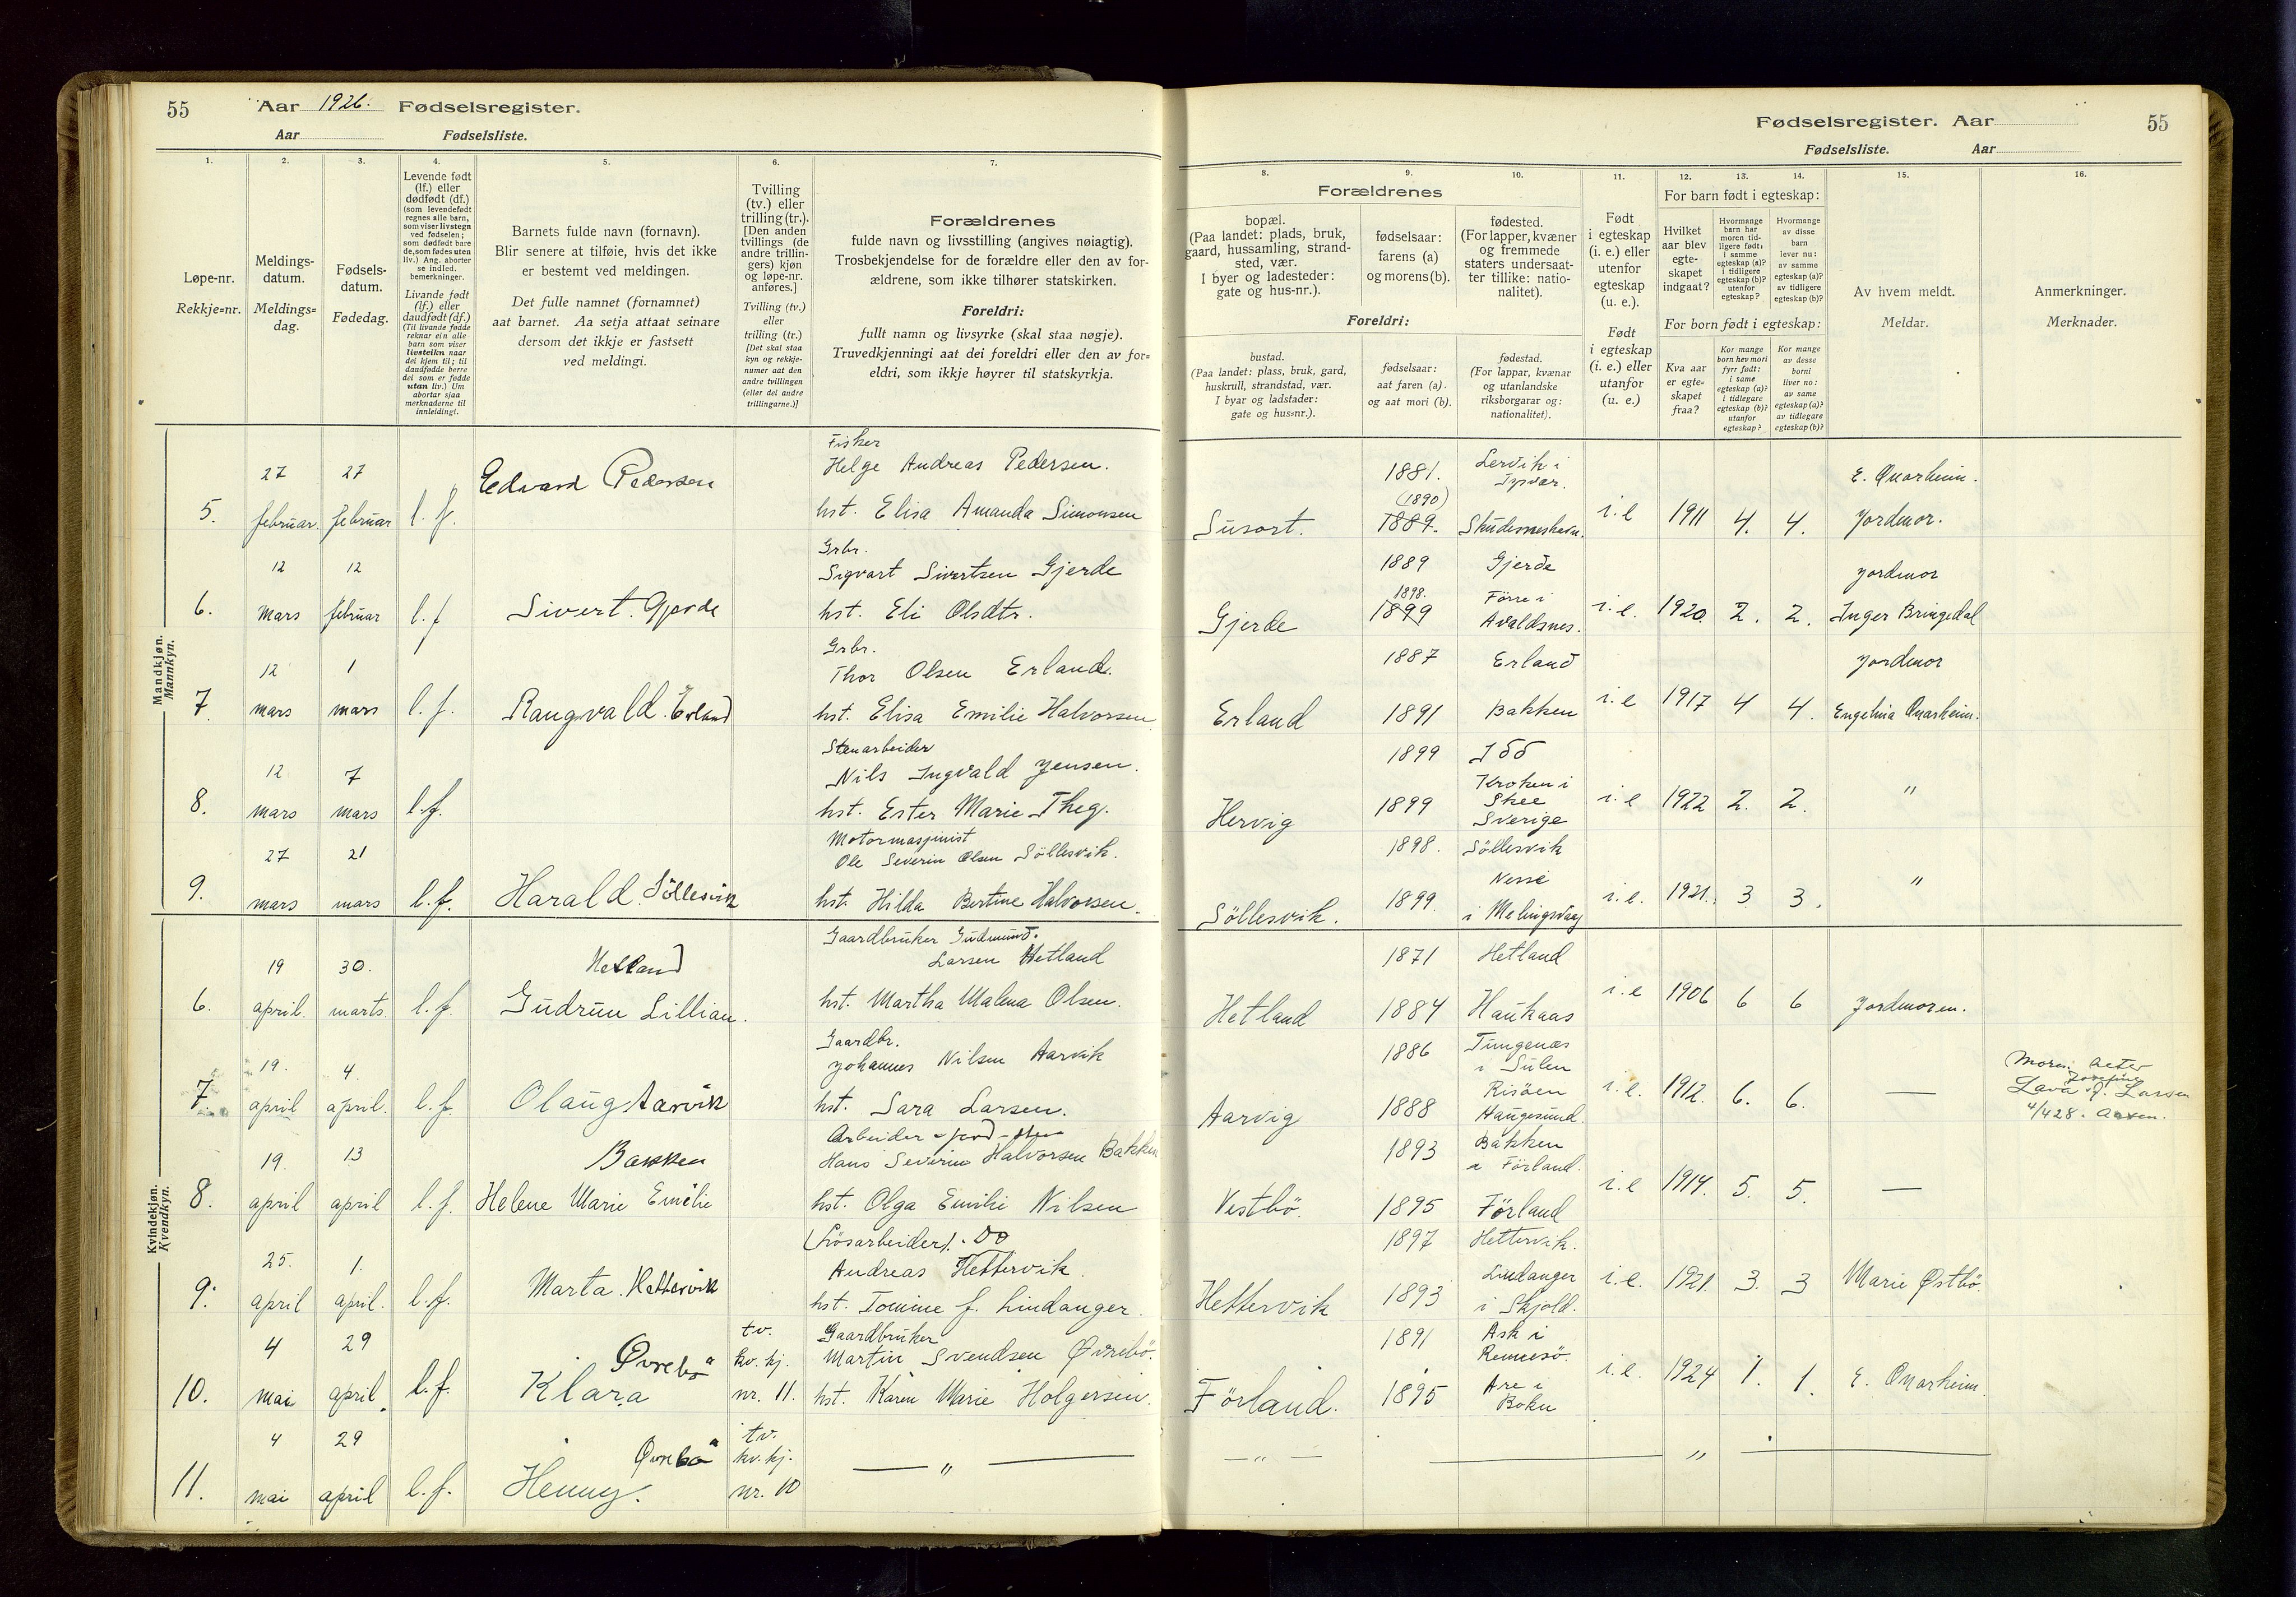 55 Aar 1926. Fødselsregister.
Aar Fødselsliste.
1. 2. 3. 4. 5. 6. 7.
Løpe-nr.
Rekkje=nr.
Meldings-
datum.
Meldings=
dag.
Fødsels-
datum.
Fødedag.
Levende født
(lf.) eller
dødfødt (df.)
(som levendefødt
regnes alle barn,
som viser livstegn
ved fødselen;
som dødfødt bare
de, som fødes uten
liv.) Ang. aborter
se indled.
bemerkninger.
Livande født
(lf.) eller
daudfødt (df.)
(Til livande fødde
reknar ein alle
barn som viser
livsteikn naar
dei kjem til; til
daudfødde berre
dei som er fødde
utan liv.) Um
abortar sjaa
merknaderne til
innleidingi.
Barnets fulde navn (fornavn).
Blir senere at tilføie, hvis det ikke
er bestemt ved meldingen.
Det fulle namnet (fornamnet)
aat barnet. Aa setja attaat seinare
dersom det ikkje er fastsett
ved meldingi.
Tvilling
(tv.) eller
trilling (tr.).
[Den anden
tvillings (de
andre trillin-
gers) kjøn
og løpe-nr.
anføres.]
Tvilling (tv.)
eller
trilling (tr.)
[Det skal staa
kyn og rekkje-
numer aat den
andre tvillingen
(eller dei andre
trillingarne.)]
Forældrenes
fulde navn og livsstilling (angives nøiagtig).
Trosbekjendelse for de forældre eller den av for-
ældrene, som ikke tilhører statskirken.
Foreldri:
fullt namn og livsyrke (skal staa nøgje).
Truvedkjenningi aat dei foreldri eller den av for=
eldri, som ikkje høyrer til statskyrkja.
Fødselsregister. Aar 55
Fødselsliste. Aar
8. 9. 10. 11. 12. 13. 14. 15. 16.
Forældrenes
bopæl.
(Paa landet: plads, bruk,
gaard, hussamling, strand-
sted, vær.
I byer og ladesteder:
gate og hus-nr.).
fødselsaar:
farens (a)
og morens (b).
fødested.
(For lapper, kvæner
og fremmede
staters undersaat-
ter tillike: natio-
nalitet).
Foreldri:
bustad.
(Paa landet: plass, bruk, gard,
huskrull, strandstad, vær.
I byar og ladstader:
gate og hus=nr.).
fødselsaar:
aat faren (a).
og aat mori (b).
fødestad.
(For lappar, kvænar
og utanlandske
riksborgarar og:
nationalitet).
Født
i egteskap
(i. e.) eller
utenfor
egteskap
(u. e.).
Født
i egteskap
(i. e.) eller
utanfor
(u. e.)
For barn født i egteskap:
Hvilket
aar blev
egte-
skapet
indgaat?
Hvormange
barn har
moren tid-
ligere født:
i samme
egteskap (a)?
i tidligere
egteskap (b)?
utenfor
egteskap?
Hvormange
av disse
barn
lever nu:
av samme
egteskap (a)?
av tidligere
egteskap (b)?
For born født i egteskap:
Kva aar
er egte=
skapet
fraa?
Kor mange
born hev mori
fyrr født:
i same
egteskap (a)?
i tidlegare
egteskap (b)?
utanfor
egteskap?
Kor mange
av desse
borni
liver no:
av same
egteskap (a)?
av tidlegare
egteskap (b)?
Av hvem meldt.
Meldar.
Anmerkninger.
Merknader.
Mandkjøn.
Mannkyn.
Fisker
27 27 Edvard Pedersen Helge Andreas Pedersen. 1881. Lervik i Tysvær. E. Qvarheim.
5. februar. februar l. f. hst. Elisa Amanda Simonsen Susort. (1890) 1889. Skudesneshavn. i. e 1911 4. 4. Jordmor.
Grbr.
12 12 Sigvart Sivertsen Gjerde 1889 Gjerde Jordmor
6. mars februar l. f Sivert. Gjerde hst. Eli Olsdtr. Gjerde 1898. 1899 Førre i Avaldsnes. i. e. 1920. 2. 2. Inger Bringedal
Grbr.
12 1 Thor Olsen Erland. 1887 Erland Jordmor
7. mars mars l. f. Rangvald. Erland hst. Elisa Emilie Halvorsen Erland 1891 Bakken i. e 1917 4 4. Engelina Qvarheim.
Stenarbeider
12 7 Nils Ingvald Jensen. 1899 Idd
8. mars mars l. f. hst. Ester Marie Theg. Hervig 1899 Kroken i Skee Sverige i. e 1922 2. 2. "
Motormaskinist
27 21 Ole Severin Olsen Søllesvik. 1898. Søllesvik
9. mars mars l. f. Harald. Søllesvik hst. Hilda Bertine Halvorsen. Søllesvik. 1899. i. e. 1921. 3 3. "
Kvindekjøn.
Kvendkyn.
Gaardbruker Gudmund.
19 30. Hetland Larsen Hetland 1871 Hetland
6. april. marts. l. f. Gudrun Lillian. hst. Martha Malena Olsen. Hetland 1884 Haukaas i. e 1906 6 6 Jordmoren.
Gaardbr.
19. 4. Johannes Nilsen Aarvik 1886 Tungenæs i Sulen
7 april april. l. f. Olaug Aarvik hst. Sara Larsen. Aarvig 1888 Risøen Haugesund. i. e. 1912. 6. 6. —
Larsen
4/428.
19. 13 Bakken Arbeider
Hans Severin Halvorsen Bakken 1893 Bakken i Førland.
8. april april l. f. Helene Marie Emilie hst. Olga Emilie Nilsen Vestbø. 1895 Førland i. e 1914. 5. 5. —
(Løsarbeider).
25. 1. Andreas Hettervik. 1897 Hettervik.
9. april april. l. f. Marta. Hettervik hst. Tomine f. Lindanger. Hettervik 1893 Lindanger i Skjold. i. e. 1921. 3. 3 Marie Østbø.
4 29 Øvrebø tv. kv. kj. Gaardbruker
Martin Svendsen Øvrebø. 1891 Ask i Rennesø.
10. mai april. l. f. Klara nr. 11. hst. Karin Marie Holgersen. Førland. 1895 Are i Bokn i. e. 1924 1. 1. E. Qvarheim.
4 29 Øvrebø tv. kv. kj. — " — — " — "
11. mai april l. f. Henny. nr. 10